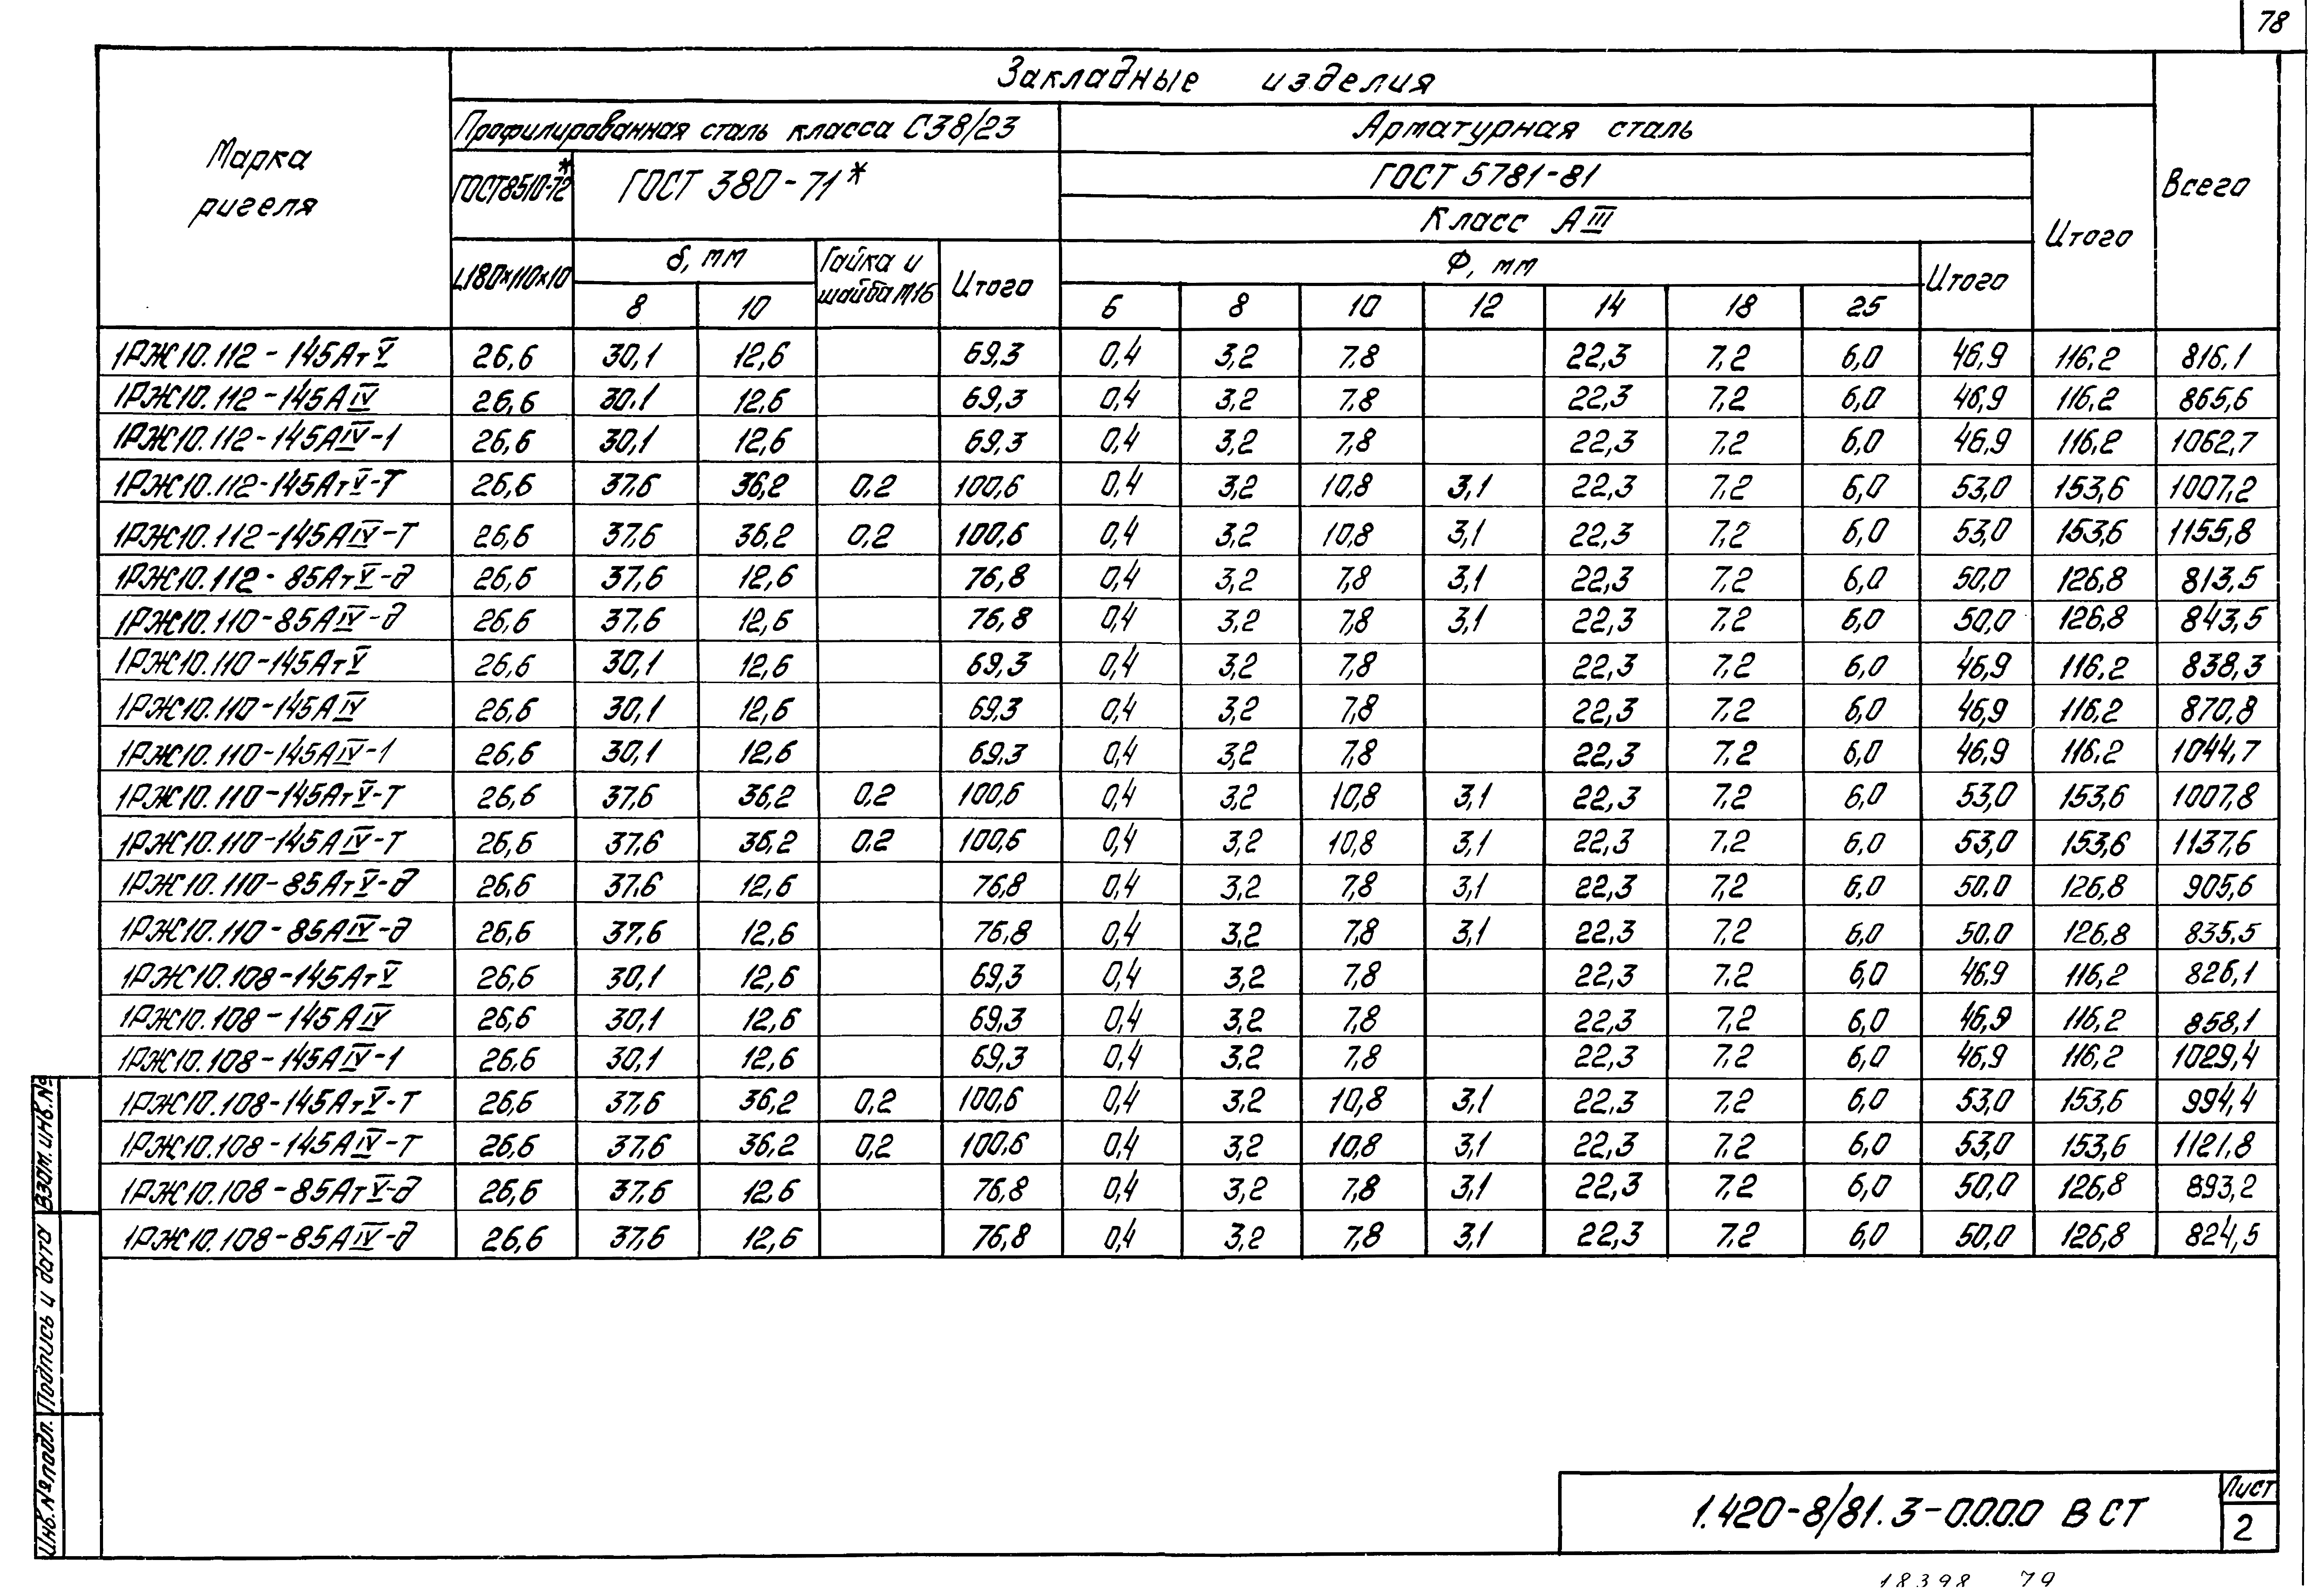 78
Закладные изделия
Марка ригеля
Профилированная сталь класса С38/23
Арматурная сталь
Итого
Всего
ГОСТ8510-72*
ГОСТ 380-71*
ГОСТ 5781-81
Класс АIII
L180х110х10
δ, мм
Гайка и шайба М16
Итого
Ф, мм
Итого
8 10 6 8 10 12 14 18 25
1РЖ10.112-145АтV 26,6 30,1 12,6 69,3 0,4 3,2 7,8 22,3 7,2 6,0 46,9 116,2 816,1
1РЖ10.112-145АIV 26,6 30,1 12,6 69,3 0,4 3,2 7,8 22,3 7,2 6,0 46,9 116,2 865,6
1РЖ10.112-145АIV-1 26,6 30,1 12,6 69,3 0,4 3,2 7,8 22,3 7,2 6,0 46,9 116,2 1062,7
1РЖ10.112-145АтV-Т 26,6 37,6 36,2 0,2 100,6 0,4 3,2 10,8 3,1 22,3 7,2 6,0 53,0 153,6 1007,2
1РЖ10.112-145АIV-Т 26,6 37,6 36,2 0,2 100,6 0,4 3,2 10,8 3,1 22,3 7,2 6,0 53,0 153,6 1155,8
1РЖ10.112-85АтV-д 26,6 37,6 12,6 76,8 0,4 3,2 7,8 3,1 22,3 7,2 6,0 50,0 126,8 813,5
1РЖ10.110-85АIV-д 26,6 37,6 12,6 76,8 0,4 3,2 7,8 3,1 22,3 7,2 6,0 50,0 126,8 843,5
1РЖ10.110-145АтV 26,6 30,1 12,6 69,3 0,4 3,2 7,8 22,3 7,2 6,0 46,9 116,2 838,3
1РЖ10.110-145АIV 26,6 30,1 12,6 69,3 0,4 3,2 7,8 22,3 7,2 6,0 46,9 116,2 870,8
1РЖ10.110-145АIV-1 26,6 30,1 12,6 69,3 0,4 3,2 7,8 22,3 7,2 6,0 46,9 116,2 1044,7
1РЖ10.110-145АтV-Т 26,6 37,6 36,2 0,2 100,6 0,4 3,2 10,8 3,1 22,3 7,2 6,0 53,0 153,6 1007,8
1РЖ10.110-145АIV-Т 26,6 37,6 36,2 0,2 100,6 0,4 3,2 10,8 3,1 22,3 7,2 6,0 53,0 153,6 1137,6
1РЖ10.110-85АтV-д 26,6 37,6 12,6 76,8 0,4 3,2 7,8 3,1 22,3 7,2 6,0 50,0 126,8 905,6
1РЖ10.110-85АIV-д 26,6 37,6 12,6 76,8 0,4 3,2 7,8 3,1 22,3 7,2 6,0 50,0 126,8 835,5
1РЖ10.108-145АтV 26,6 30,1 12,6 69,3 0,4 3,2 7,8 22,3 7,2 6,0 46,9 116,2 826,1
1РЖ10.108-145АIV 26,6 30,1 12,6 69,3 0,4 3,2 7,8 22,3 7,2 6,0 46,9 116,2 858,1
1РЖ10.108-145АIV-1 26,6 30,1 12,6 69,3 0,4 3,2 7,8 22,3 7,2 6,0 46,9 116,2 1029,4
1РЖ10.108-145АтV-Т 26,6 37,6 36,2 0,2 100,6 0,4 3,2 10,8 3,1 22,3 7,2 6,0 53,0 153,6 994,4
1РЖ10.108-145АIV-Т 26,6 37,6 36,2 0,2 100,6 0,4 3,2 10,8 3,1 22,3 7,2 6,0 53,0 153,6 1121,8
1РЖ10.108-85АтV-д 26,6 37,6 12,6 76,8 0,4 3,2 7,8 3,1 22,3 7,2 6,0 50,0 126,8 893,2
1РЖ10.108-85АIV-д 26,6 37,6 12,6 76,8 0,4 3,2 7,8 3,1 22,3 7,2 6,0 50,0 126,8 824,5
Взам. инв. №
Подпись и дата
Инв. № подл.
1.420-8/81.3-0.0.0.0 ВСТ
Лист
2
18398 79